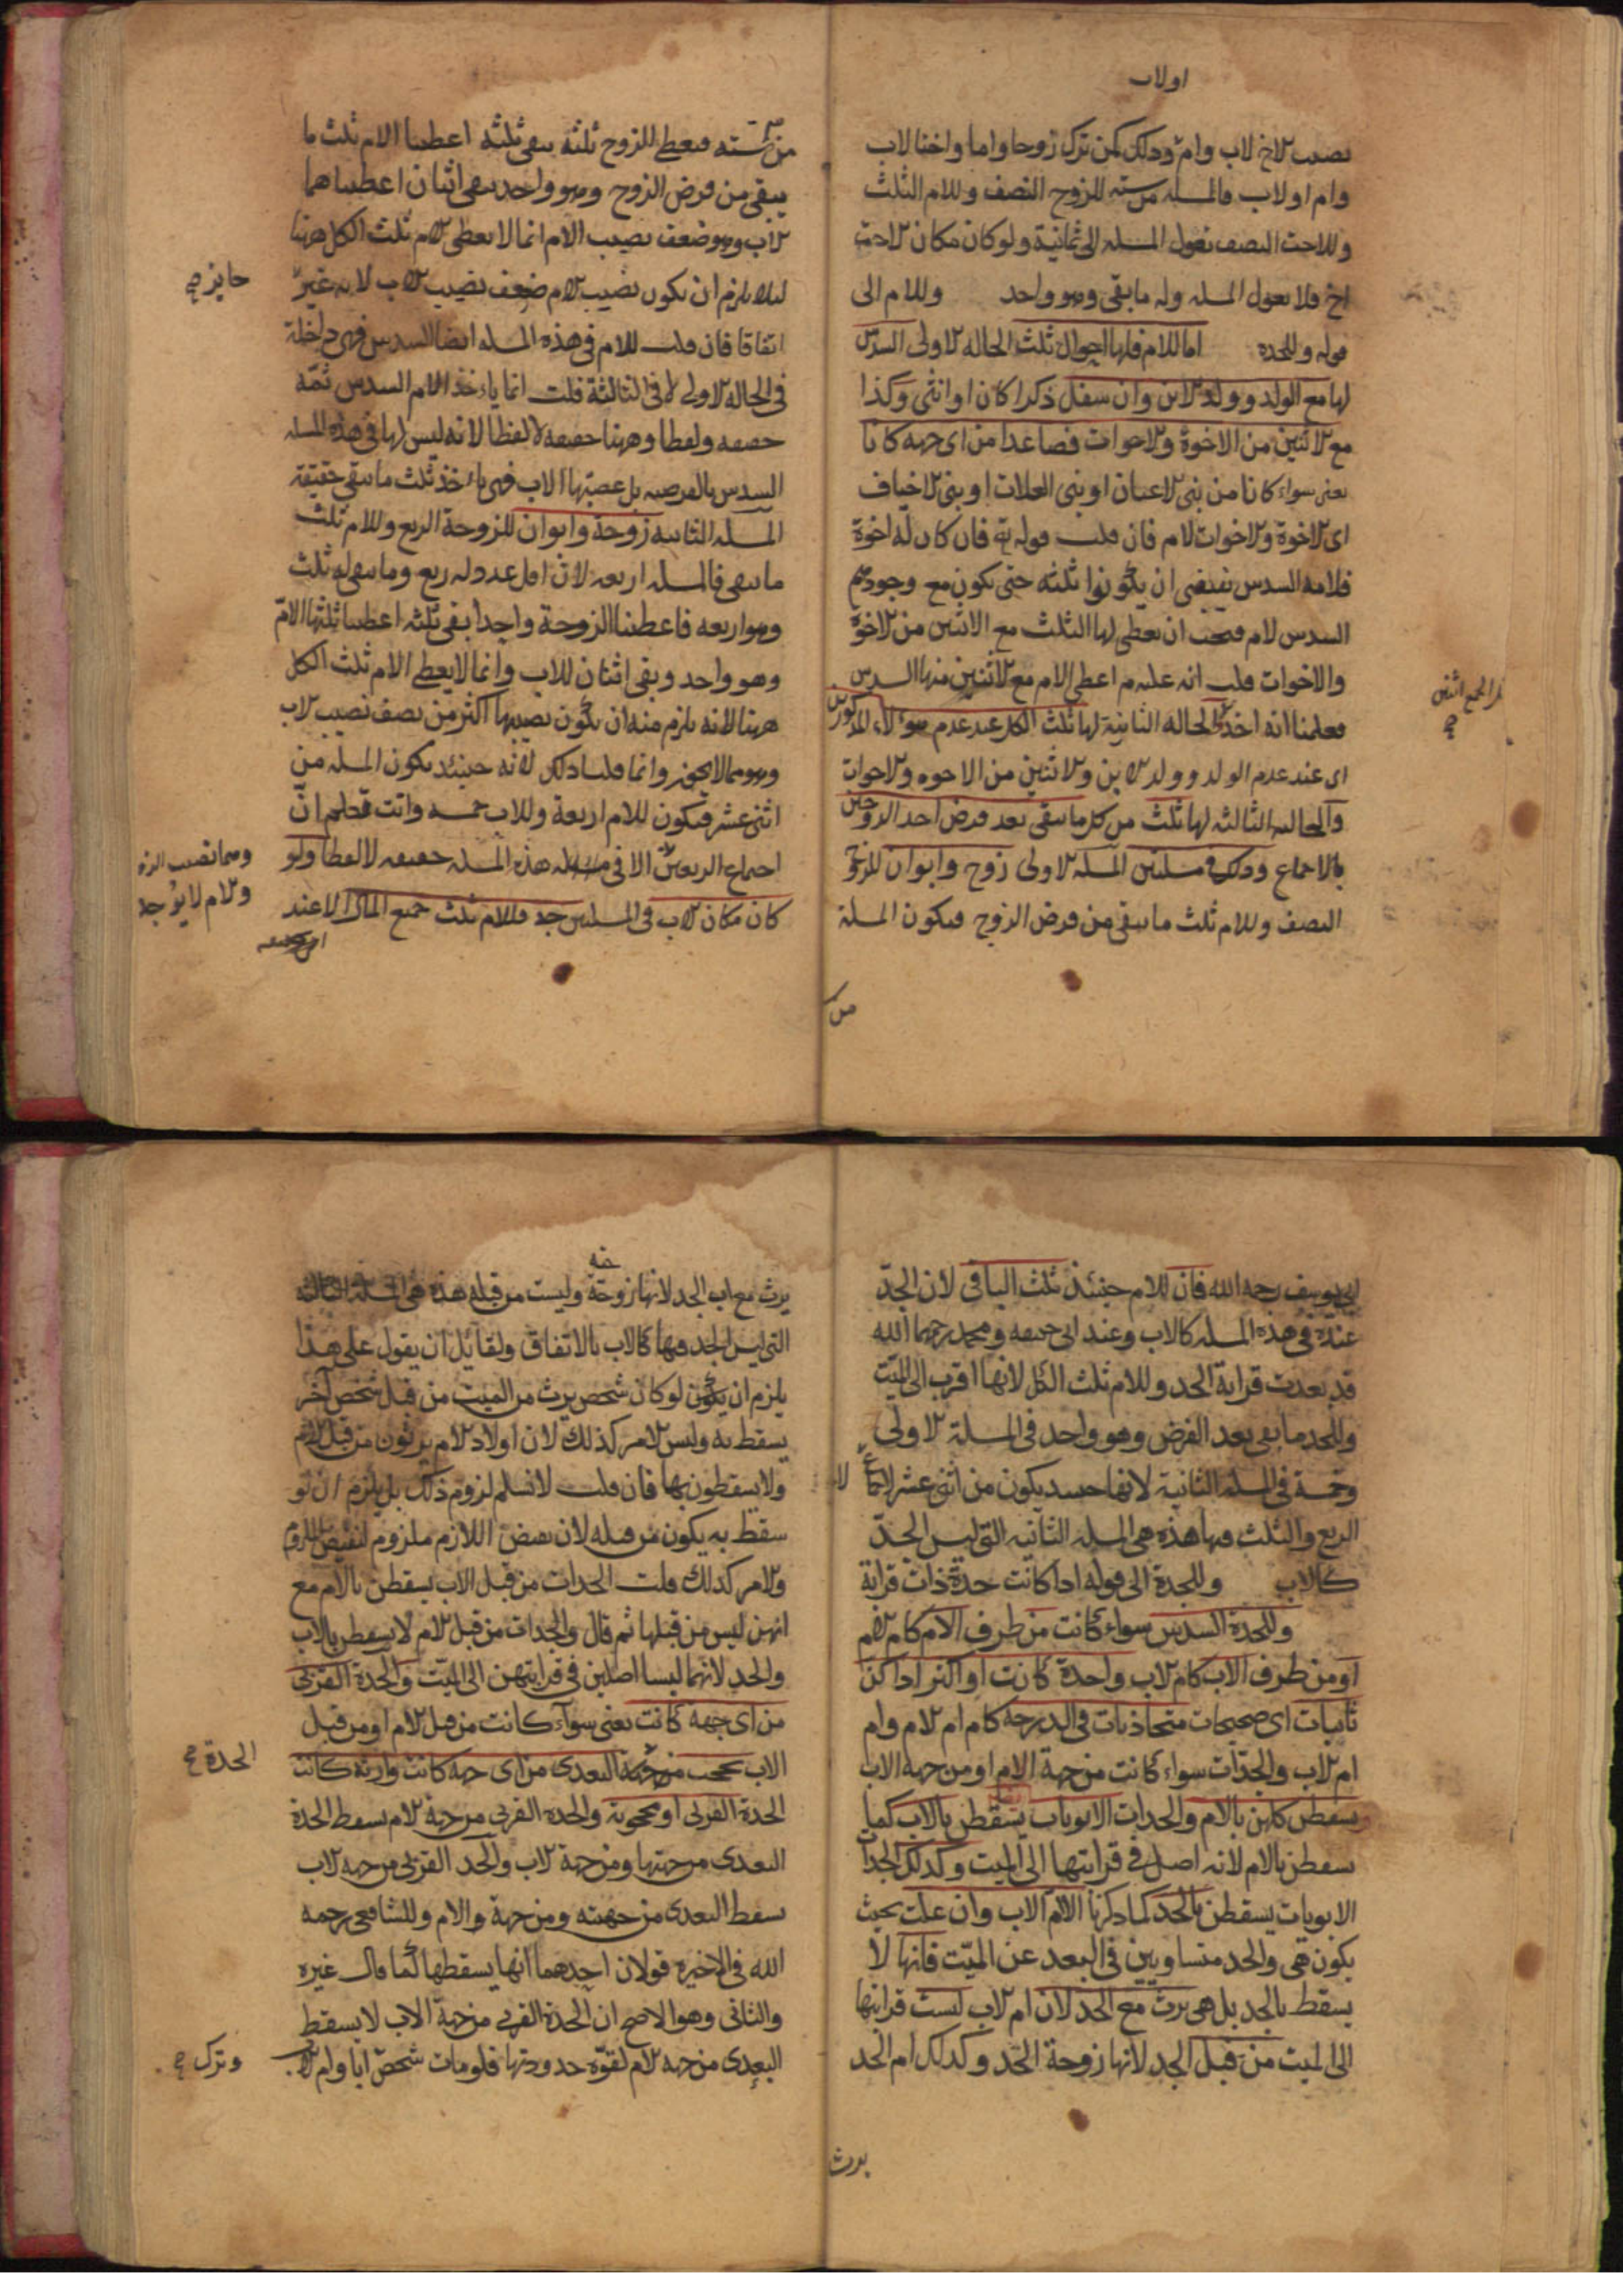 اولاب
نصيب الاخ لاب وام وذلك كمن ترك زوجا واما واختا لاب
وام او لاب فالمسله من سته للزوج النصف وللام الثلث
وللاخت النصف تعول المسله الى ثمانية ولو كان مكان الاخت
اخ فلا تعول المسله وله ما بقى وهو واحد وللام الى
قوله وللجده اما للام فلها احوال ثلث الحاله الاولى السدس
لها مع الولد وولد الابن وان سفل ذكرا كان او انثى وكذا
مع الاثنين من الاخوة والاخوات فصاعدا من اى جهه كانا
يعنى سواء كانا من بنى الاعيان او بنى العلات او بنى الاخياف
اى الاخوة والاخوات لام فان قلت قوله تع فان كان له اخوة
فلامه السدس يقتضى ان يكونوا ثلثه حتى يكون مع وجودهم
السدس لام فيجب ان يعطى لها الثلث مع الاثنين من الاخوة
والاخوات قلت انه علم اعطى الام مع الاثنين منها السدس
فعلمنا انه اخذ الحاله الثانية لها ثلث الكل عند عدم هؤلاء المذكورين
اى عند عدم الولد وولد الابن والاثنين من الاخوه والاخوات
والحاله الثالثه لها ثلث من كل ما يبقى بعد فرض احد الزوجين
بالاجماع وذلك فى مسلتين المسله الاولى زوج وابوان للزوج
النصف وللام ثلث ما يبقى من فرض الزوج فيكون المسلة
الجمع اثنين
من
من سته فيعطى للزوج ثلثة يبقى ثلثه اعطينا الام ثلث ما
يبقى من فرض الزوج وهو واحد يبقى اثنان اعطيناهما
الاب وهو ضعف نصيب الام انما لا يعطى الام ثلث الكل ههنا
ليلا يلزم ان يكون نصيب الام ضعف نصيب الاب لانه غير
جايز صح
اتفاقا فان قلت للام فى هذه المسله ايضا السدس فهى داخلة
فى الحاله الاولى لا فى الثالثة قلت انما ياءخذ الام السدس ثمّه
حقيقه ولفظا وههنا حقيقه لا لفظا لانه ليس لها فى هذه المسله
السدس بالفرضيه بل عصبتها الاب فهى ياءخذ ثلث ما يبقى حقيقة
المسله الثانيه زوجة وابوان للزوجة الربع وللام ثلث
ما يبقى فالمسله اربعه لان اقل عدد له ربع وما يبقى له ثلث
وهو اربعه فاعطينا الزوجة واحدا يبقى ثلثه اعطينا ثلثها الام
وهو واحد وبقى اثنان للاب وانما لا يعطى الام ثلث الكل
ههنا لانه يلزم منه ان يكون نصيبها اكثر من نصف نصيب الاب
وهو مما لا يجوز وانما قلنا ذلك لانه حينئذ يكون المسله من
اثنى عشر فيكون للام اربعة وللاب خمسه وانت تعلم ان
اجتماع الربعين الا فى هذه المسله حقيقه لا لفظا ولو
وهما نصيب الزوجة
والام لا يوجد
كان مكان الاب فى المسلتين جد فللام ثلث جميع المال الا عند
ابى يوسف رحمه الله فان للام حينئذ ثلث الباقى لان الجدّ
عنده فى هذه المسله كالاب وعند ابى حنيفه ومحمد رحمهما الله
قد بعدت قرابة الجد وللام ثلث الكل لانها اقرب الى الميّت
وللجد ما بقى بعد الفرض وهو واحد فى المسلة الاولى
وخمسة فى المسله الثانية لانها حينئذ يكون من اثنى عشر لاجتماع
الربع والثلث فيها هذه هى المسله الثانيه التى ليس الجدّ
كالاب وللجدة الى قوله اذا كانت جدة ذات قرابة
وللجدة السدس سواء كانت من طرف الام كام الام
او من طرف الاب كام الاب واحدة كانت او اكثر اذا كن
ثابتات اى صحيحات متحاذيات فى الدرجه كام ام الام وام
ام الاب والجدّات سواء كانت من جهة الام او من جهه الاب
يسقطن كلهن بالام والجدات الابويات يسقطن بالاب كما
يسقطن بالام لانه اصل فى قرابتها الى الميت وكذلك الجدات
الابويات يسقطن بالجد كما ذكرنا الا ام الاب وان علت بحيث
يكون هى والجد متساويين فى البعد عن الميّت فانها لا
يسقط بالجد بل هى يرث مع الجد لان ام الاب ليست قرابتها
الى الميت من قبل الجد لانها زوجة الجد وكذلك ام الجد
يرث
يرث مع اب الجد لانها زوجة وليست من قبله هذه هى المسله الثالثه
التى ليس الجد فيها كالاب بالاتفاق ولقائل ان يقول على هذا
يلزم ان يكون لو كان شخص يرث من الميت من قبل شخص آخر
يسقط به وليس الامر كذلك لان اولاد الام يرثون من قبل الام
ولا يسقطون بها فان قلت لا نسلم لزوم ذلك بل يلزم ان لو
سقط به يكون من قبله لان نقيض اللازم ملزوم لنقيض الملزوم
والامر كذلك قلت الجدات من قبل الاب يسقطن بالام مع
انهن ليس من قبلها ثم قال والجدات من قبل الام لا يسقطن بالاب
والجد لانهما ليسا اصلين فى قرابتهن الى الميّت والجدة القربى
من اى جهه كانت يعنى سوآء كانت من قبل الام او من قبل
الاب تحجب الجدة البعدى من اى جهه كانت وارثه كانت
الجدة صح
الجدة القربى او محجوبة والجدة القربى من جهة الام يسقط الجدة
البعدى من جهتها ومن جهة الاب والجد القربى من جهه الاب
يسقط البعدى من جهته ومن جهة والام وللشافعى رحمه
الله فى الاخيره قولان احدهما انها يسقطها كما قال غيره
والثانى وهو الاصح ان الجدة القربى من جهة الاب لا يسقط
البعدى من جهه الام لقوّه جدودتها فلو مات شخص ابا وام الاب
وترك صح